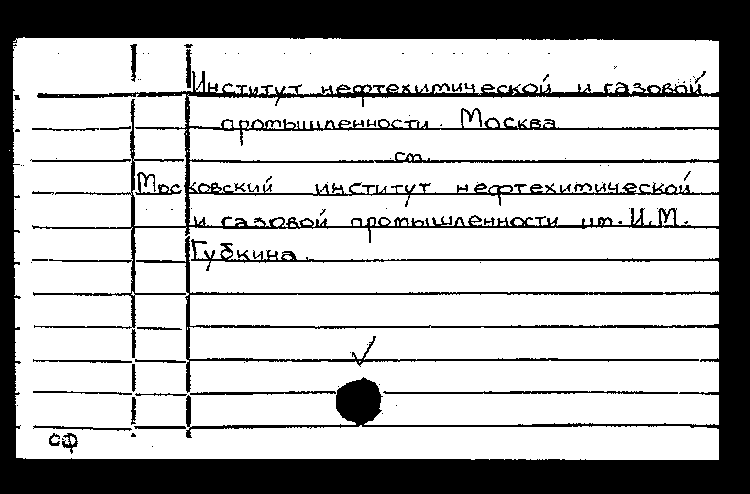 Институт нефтехимической и газовой
промышленности. Москва
см.
Московский институт нефтехимической
и газовой промышленности им. И.М.
Губкина.
СФ